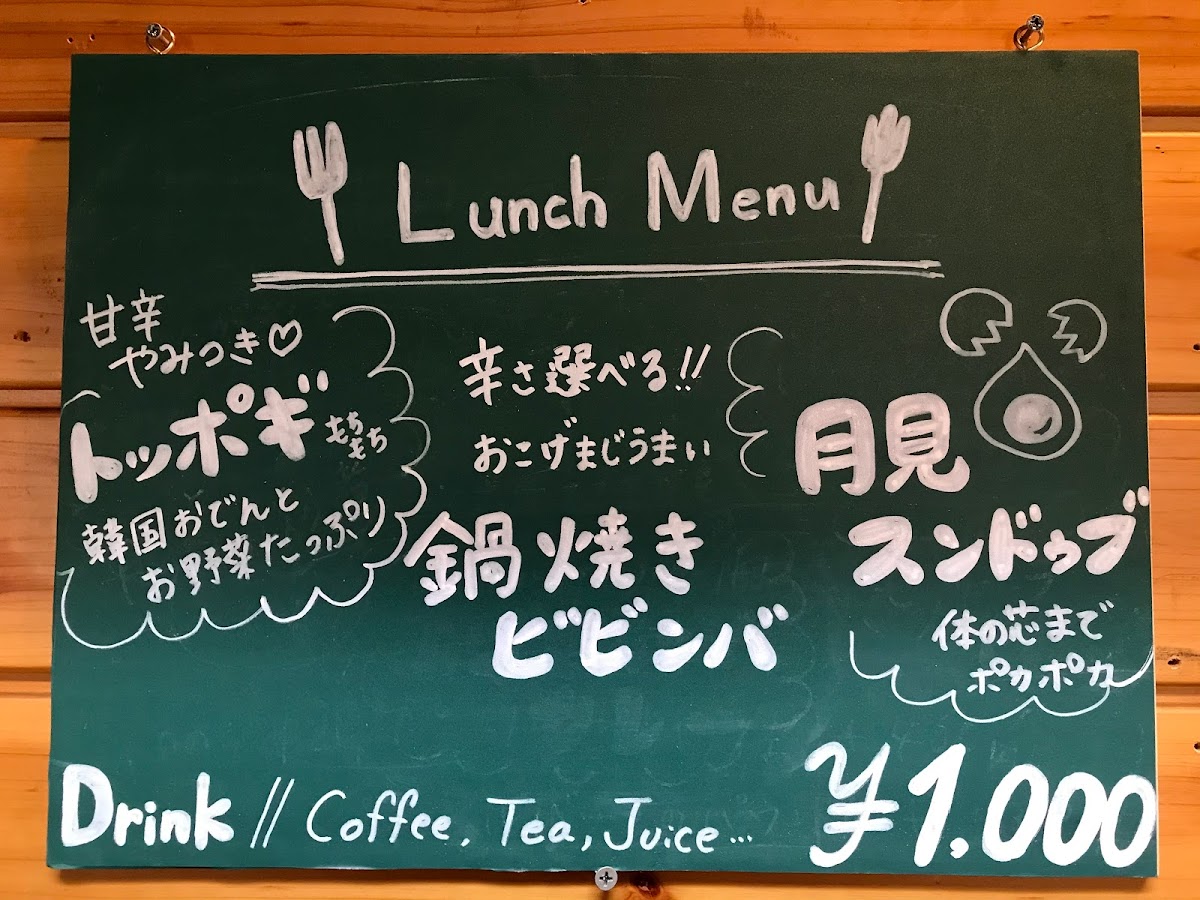 Lunch Menu
甘辛
やみつき♡
トッポギ もちもち
韓国おでんと
お野菜たっぷり
辛さ選べる!!
おこげまじうまい
鍋焼き
ビビンバ
月見
スンドゥブ
体の芯まで
ポカポカ
Drink // Coffee, Tea, Juice...
¥1,000